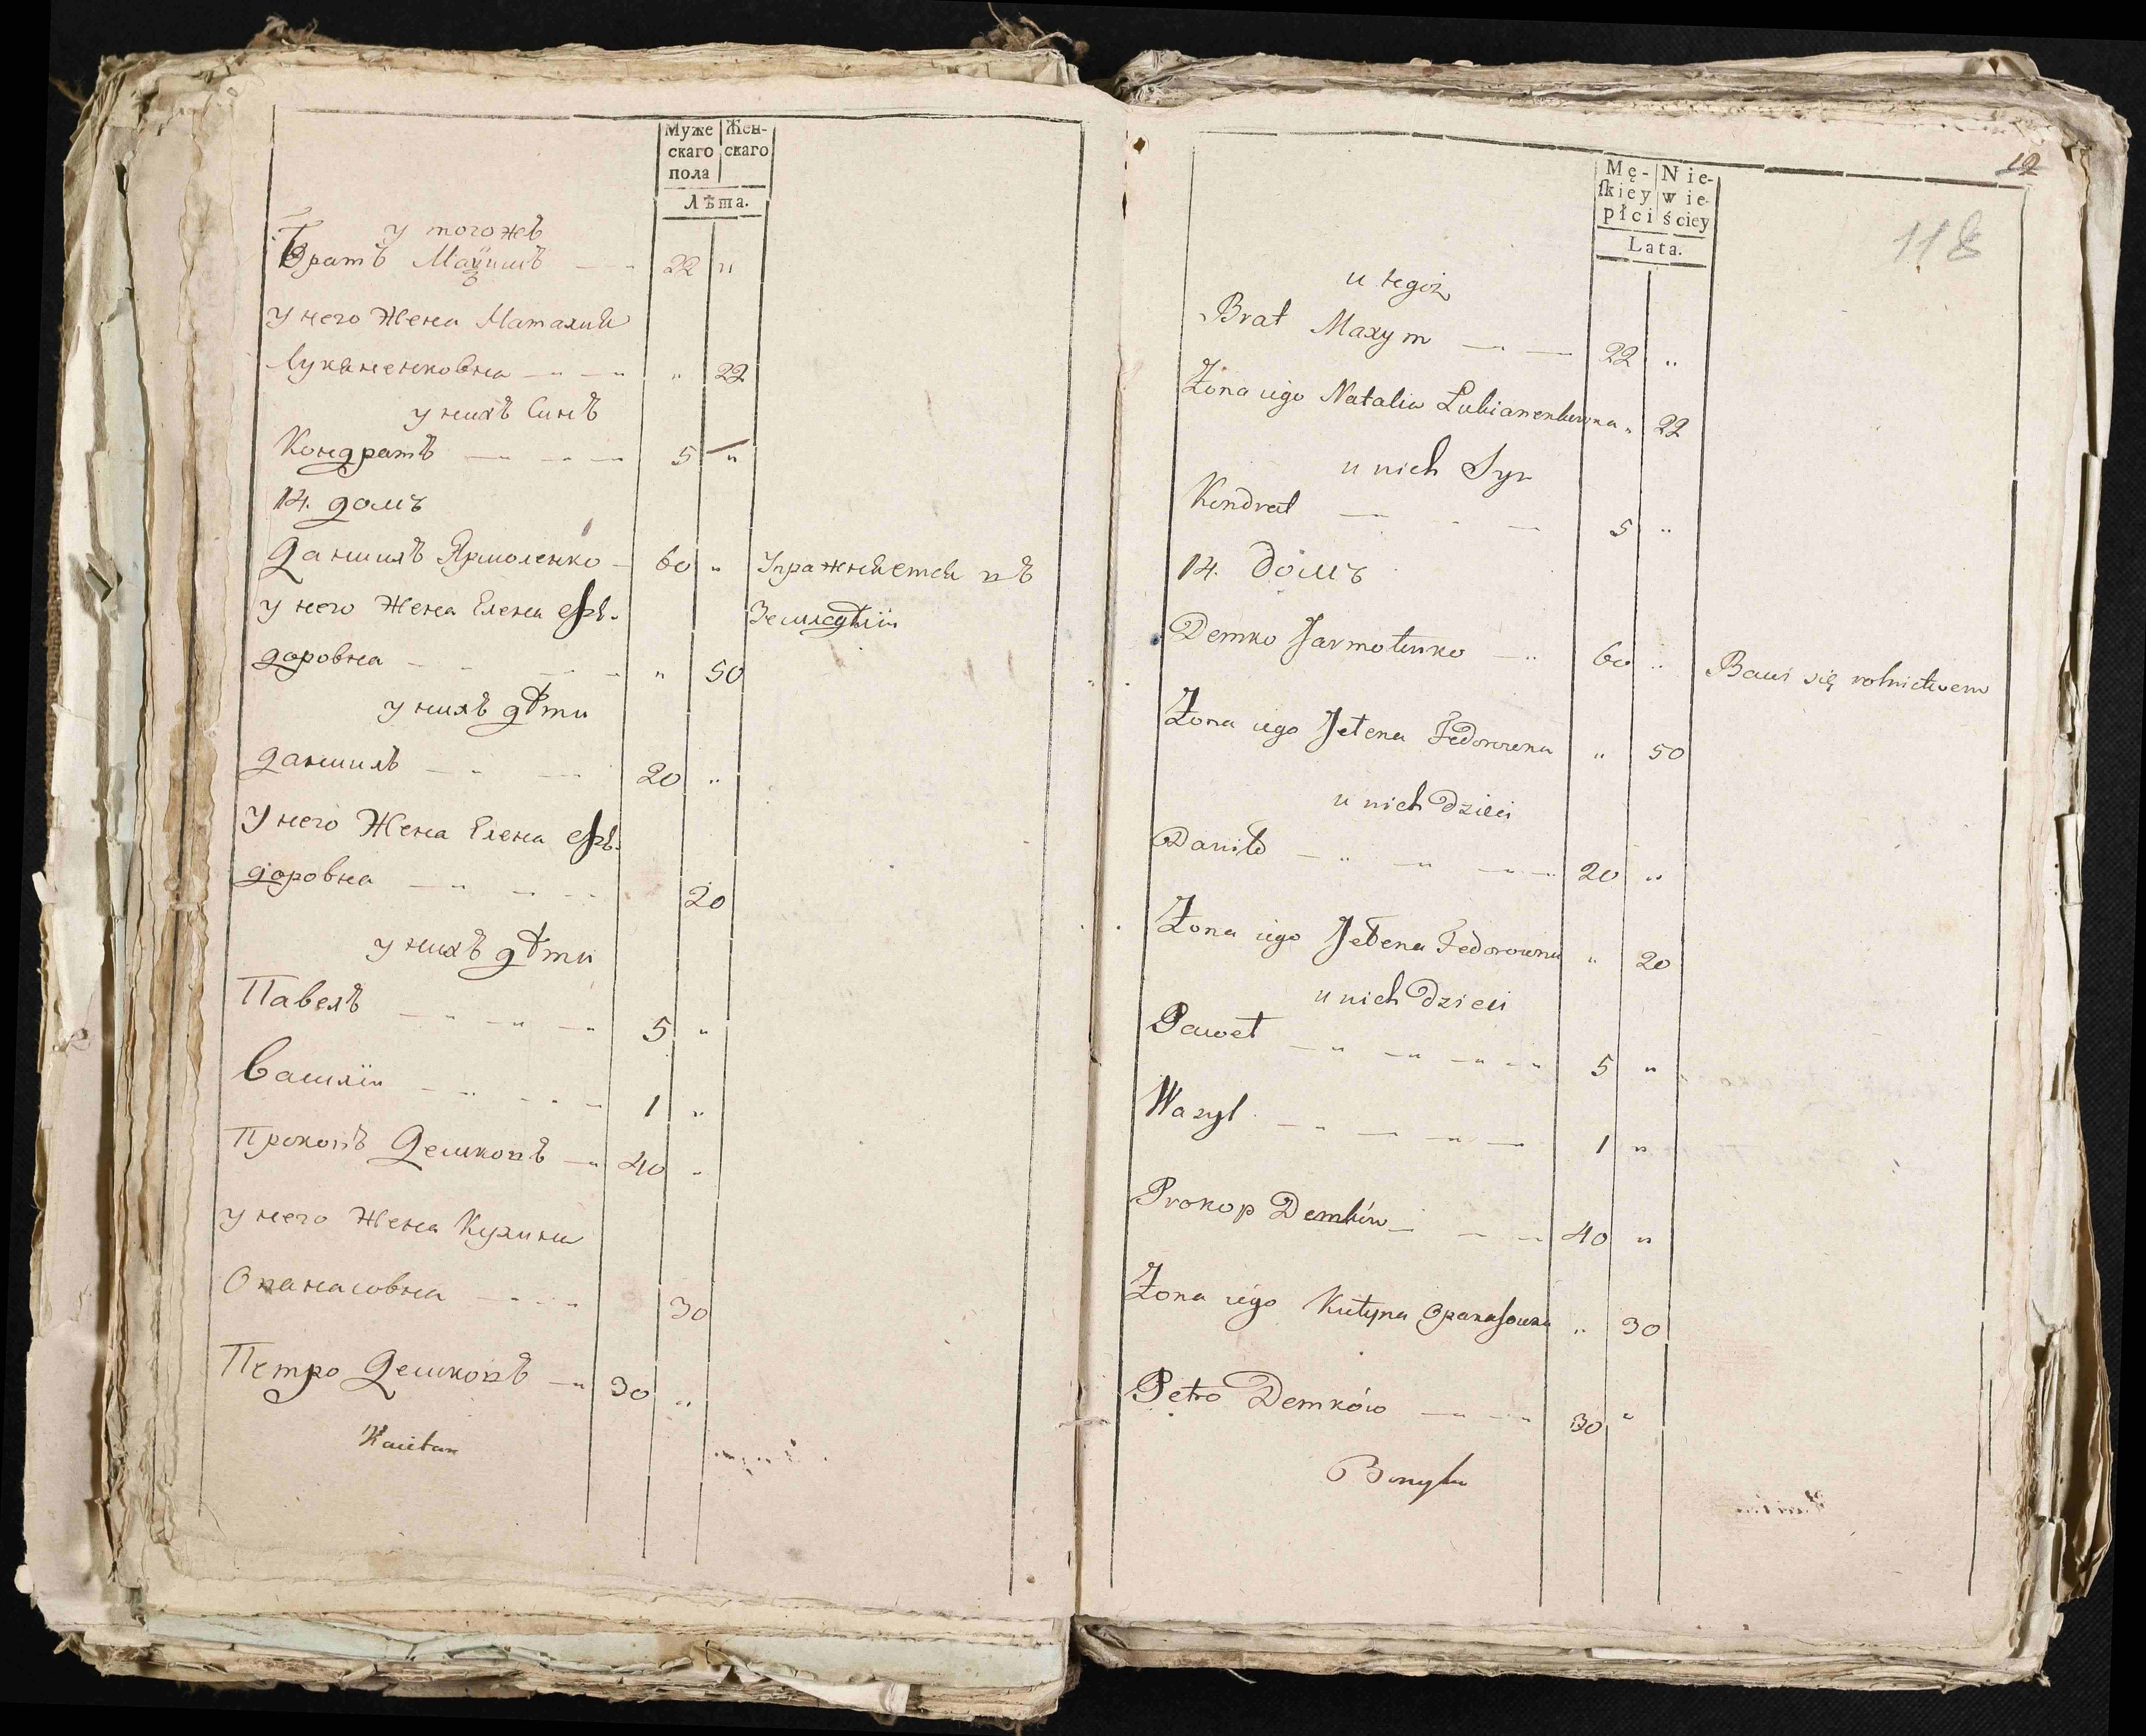 Муже
скаго
пола
Жен-
скаго
Лѣта.
у тогожъ
Братъ 22 "
у него Жена Наталия
Луканенковна " 22
у нихъ Синъ
Кондратъ 5 "
14. домъ
Данилъ Ярмоленко 60 " Упражняется въ
у него Жена Елена Фе- Земледѣлїи
доровна " 50
у нихъ дѣти
Данилъ 20 "
У него Жена Елена Фе-
доровна 20
у нихъ дѣти
Павелъ 5 "
Василїи 1 "
Прокопъ Демковъ 40 "
у него Жена Кулина
Опанасовна 30
Петро Демковъ 30 "
Kaietan
12
118
Mę-
skiey
płci
Nie-
wie-
ściey
Lata.
u tegoż
Brat Maxym 22 "
Żona iego Natalia Lukianenkowna " 22
u nich Syn
Kondrat 5 "
14. Домъ
Demko Jarmołenko 60 " Bawi się rolnictwem
Żona iego Jełena Fedorowna " 50
u nich Dzieci
Daniło 20 "
Żona iego Jełena Fedorowna " 20
u nich Dzieci
Paweł 5 "
Wasyl 1 "
Prokop Demków 40 "
Żona iego Kulyna Opanasowna " 30
Petro Demków 30 "